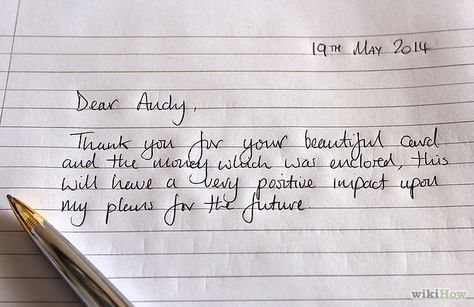 19TH MAY 2014
Dear Andy,
Thank you for your beautiful card
and the money which was enclosed, this
will have a very positive impact upon
my plans for the future.
wikiHow